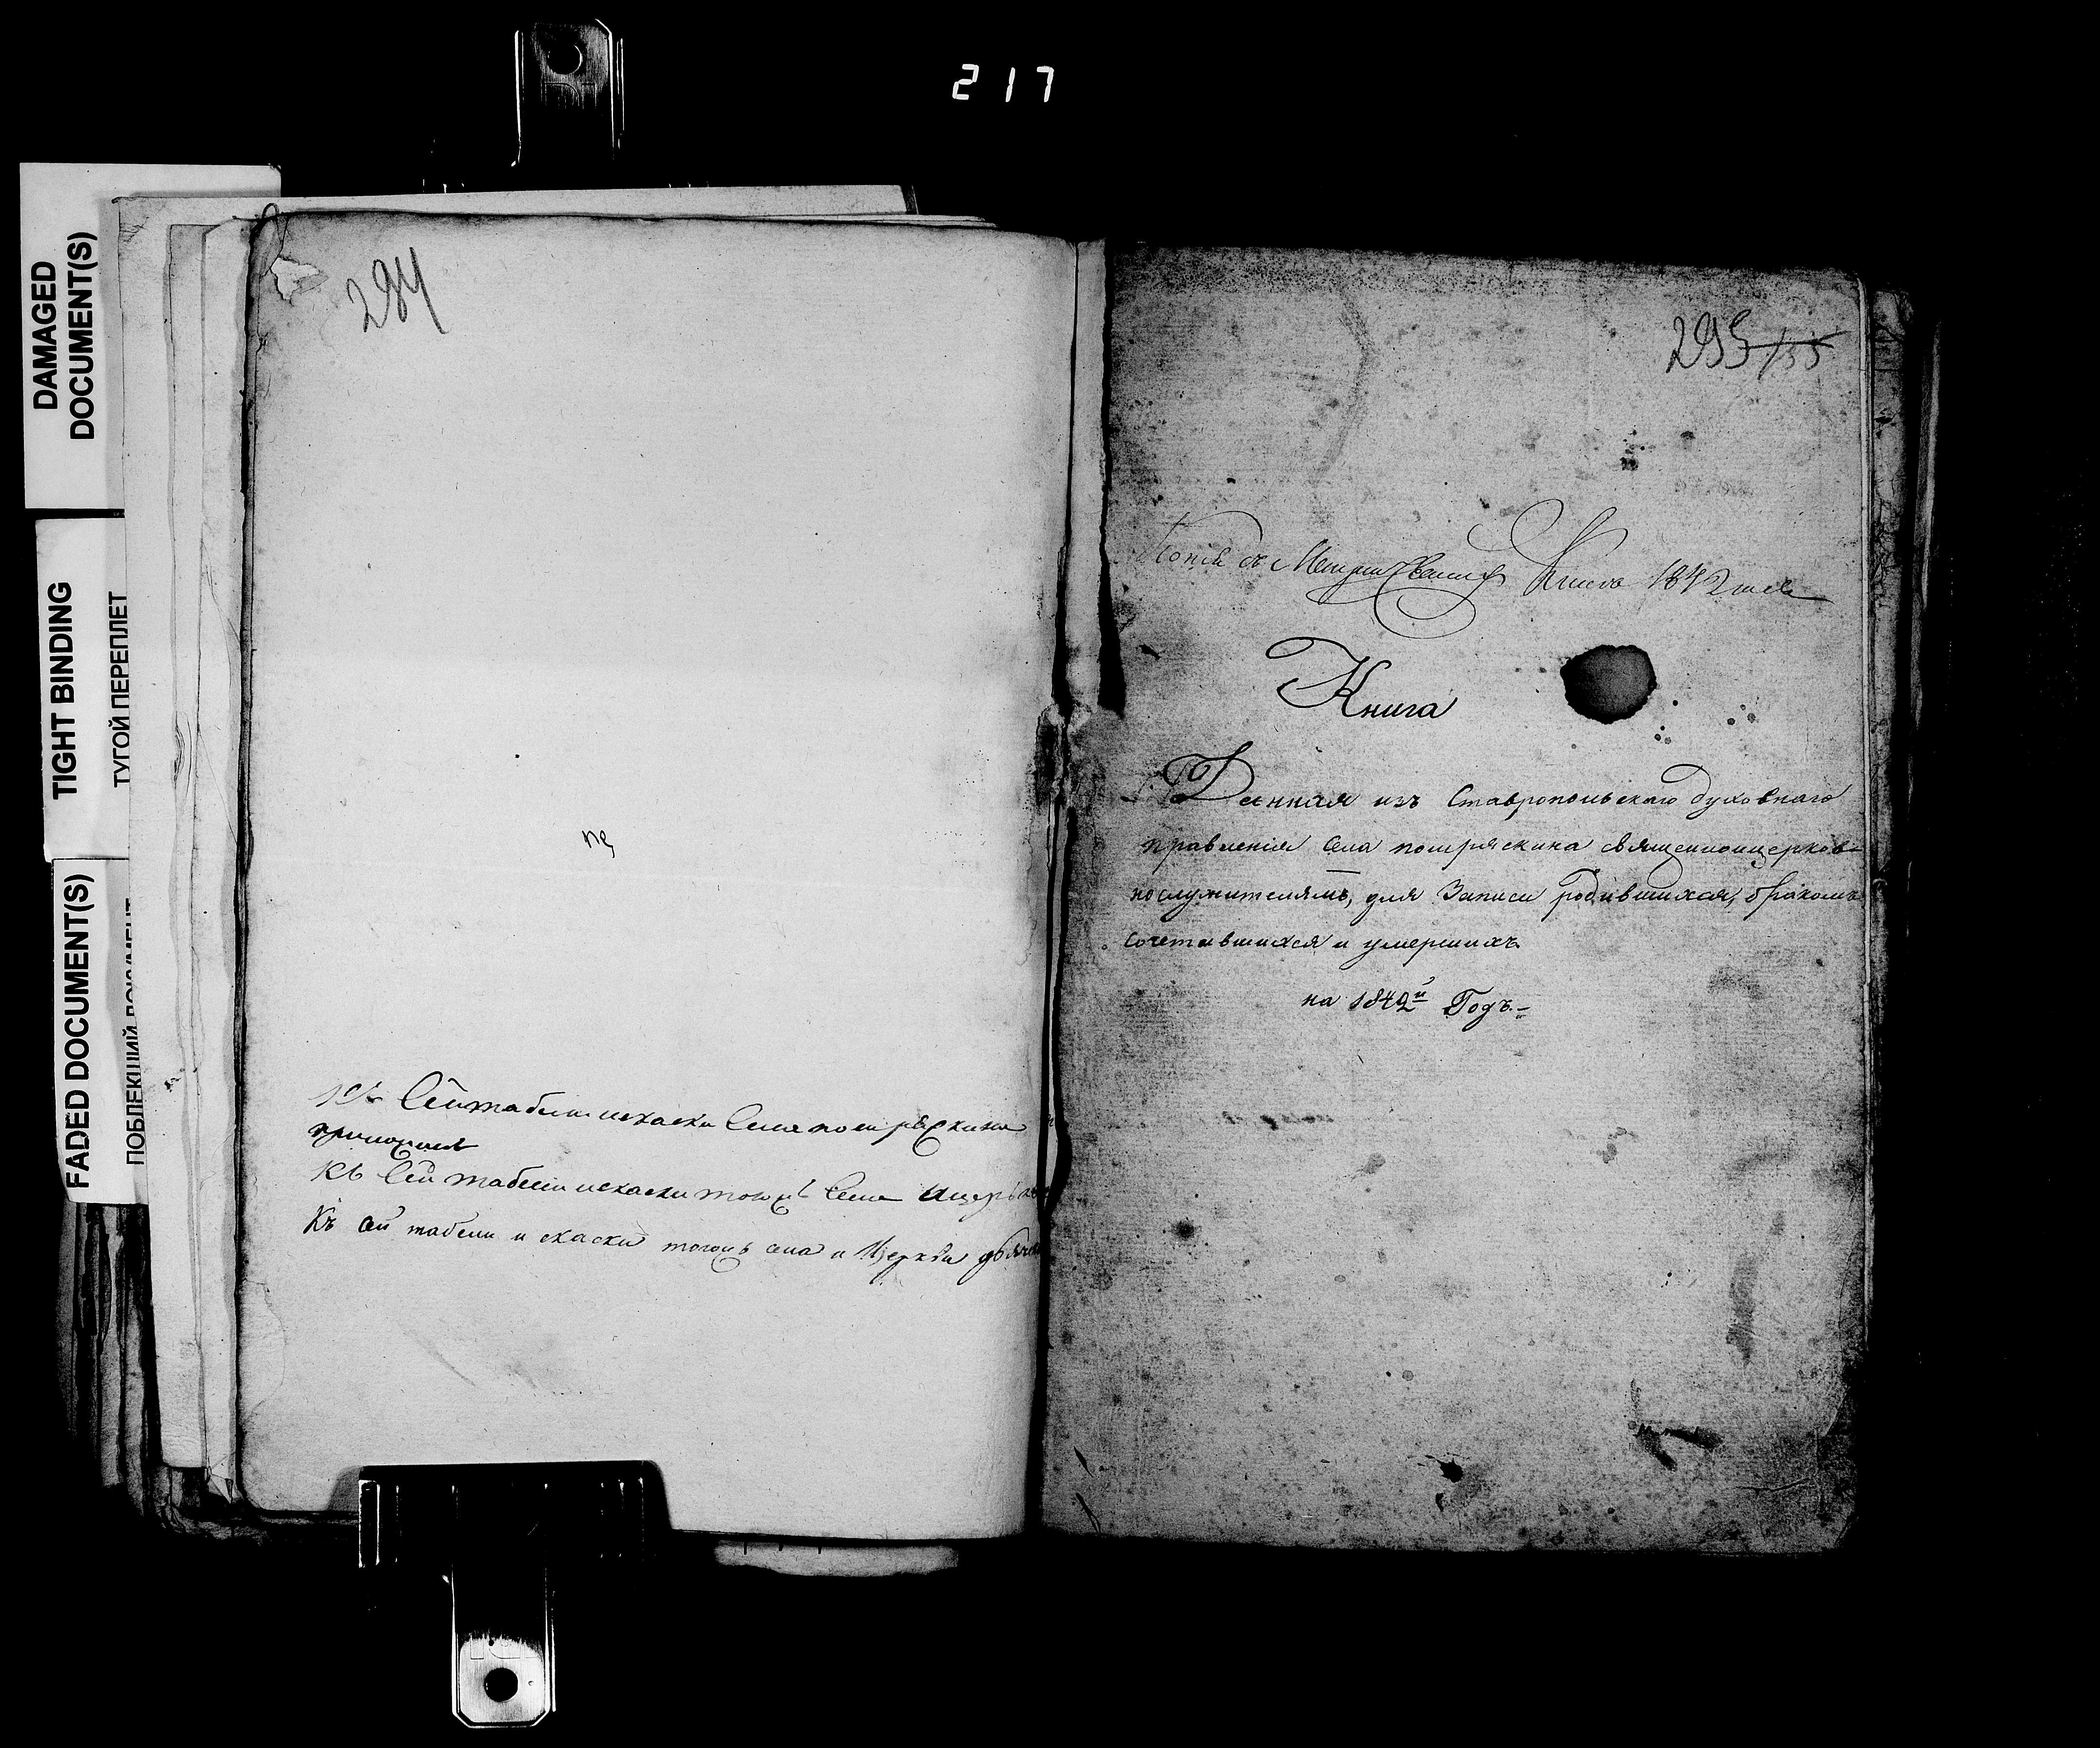 217
DAMAGED
DOCUMENT(S)
TIGHT BINDING
ТУГОЙ ПЕРЕПЛЕТ
FADED DOCUMENT(S)
ПОБЛЕКШИЙ ДОКУМЕНТ
294
Къ сей табели искаски села помряскина
Къ сей табели искаски тогожъ села ицерькв
Къ сей табели и скаски тогожъ села и Церкви дьячек
295 155
Копія съ Метрическихъ Книгъ 1842 года
Книга
Данная изъ Ставропольскаго духовнаго
правленія села помряскина священноцерков-
нослужителямъ, для Записи родившихся, бракомъ
сочетавшихся и умершихъ
на 1842й Годъ.